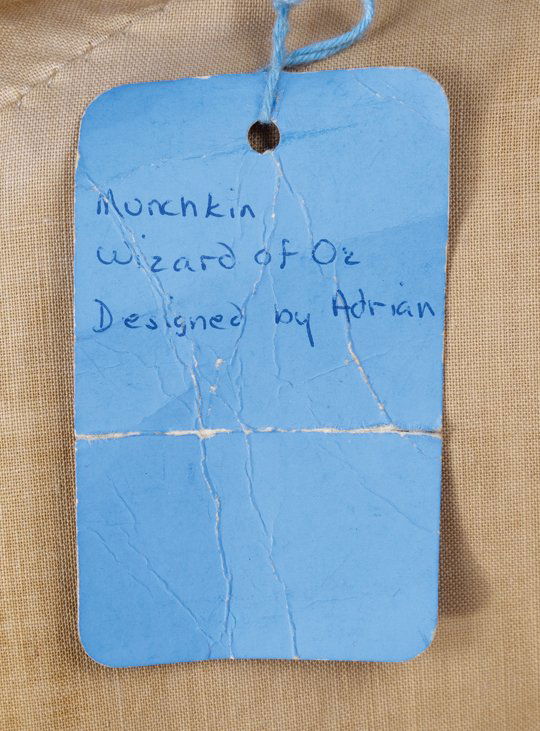 Munchkin
Wizard of Oz
Designed by Adrian